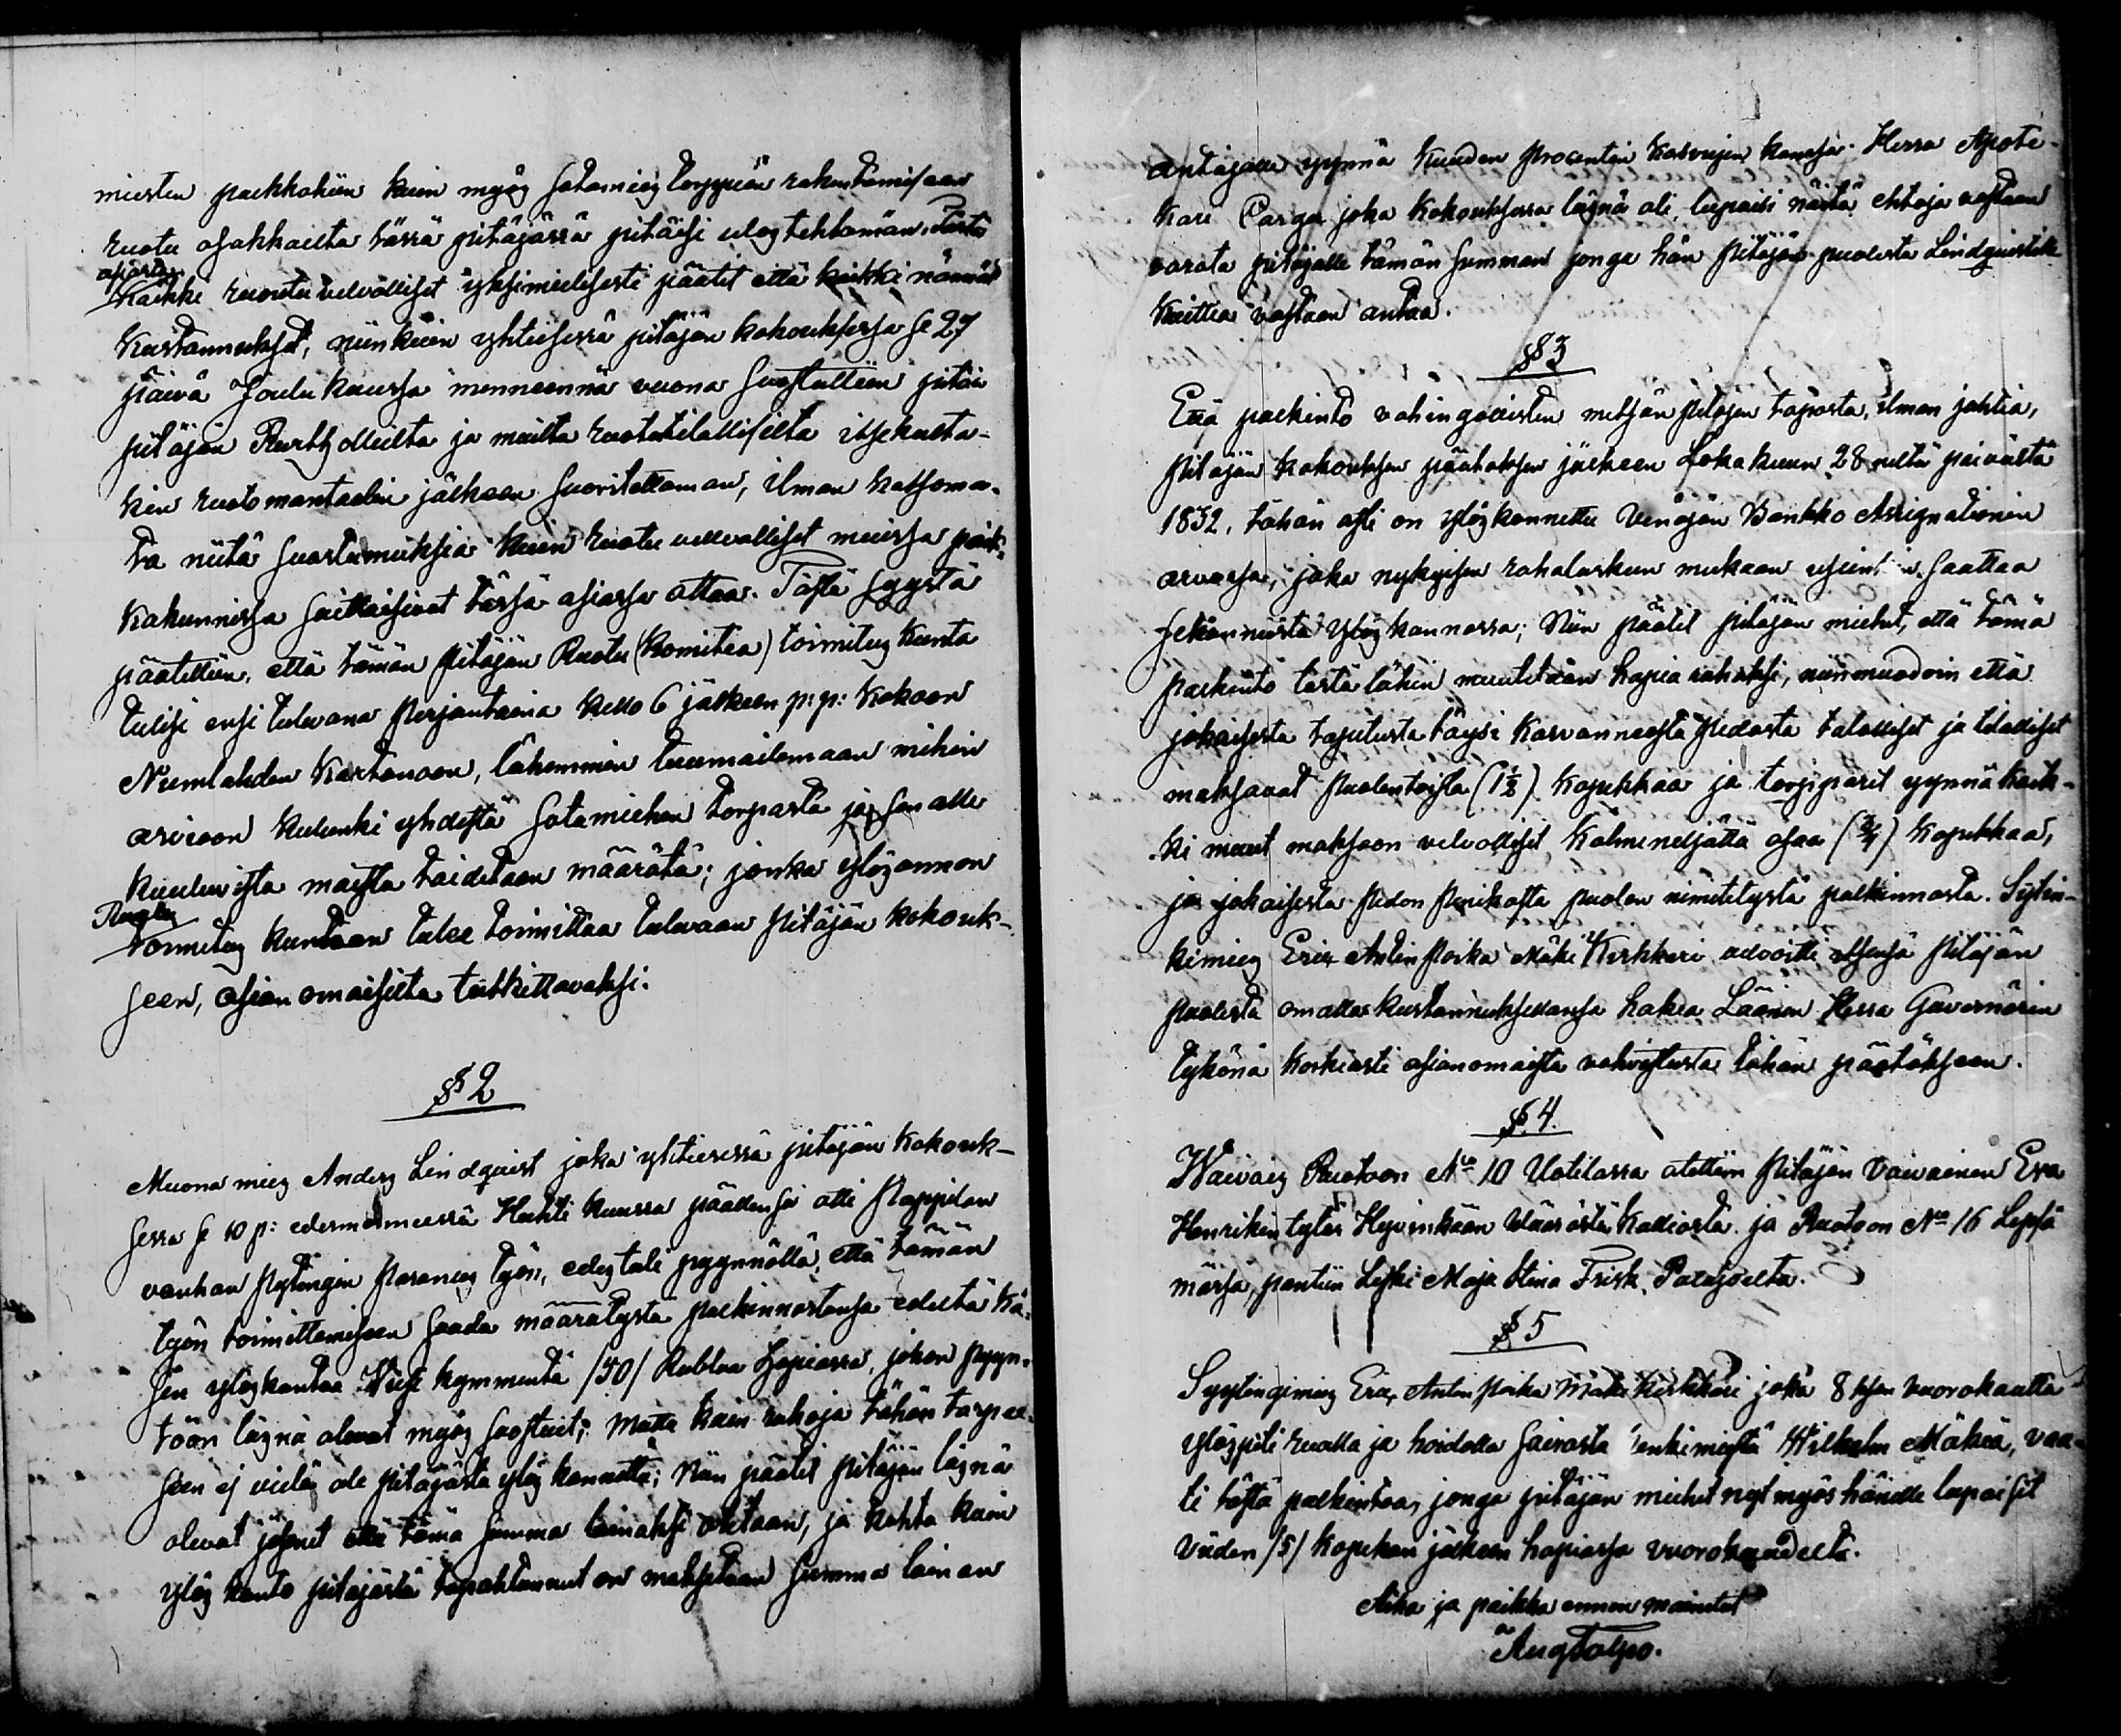 miesten palkkohiin kuin myös sotamies torppien rakentamisaan
ruotu osakkailta tässä pitäjässä pitäisi ulos tehtämän. Tästä
asiasta
Kaikki ruotu velvolliset yksimielisesti päätit että kaikki nämät
kustannukset, niinkuin yhteisessä pitäjän kokouksessa se 27
päivä Joulu kuussa menneennä vuonna suostuttiin pitää
pitäjän Rustholleilta ja muilta ruotutilallisilta itsekulta-
kin ruotomantaalin jälkeen suoritettaman, ilman katsoma-
ta niitä suostumuksia kuin ruotu velvolliset muissa paik-
kakunnissa saittaisivat tässä asiassa ottaa. Tästä syystä
päätettiin, että tämän Pitäjän Ruotu (Komitea) toimitus kunta
tulisi ensi tulevana Perjantaina kello 6 jälkeen p: p: kokoon
Numlahden Kartanoon, lähemmin tuumailemaan mihin
arvioon kulunki yhdestä sotamiehen torpasta ja sen alle
kuuluvista maista taidetaan määrätä; jonka ylösannon
Ruotu
toimitus kuntaan tulee toimittaa tulevaan Pitäjän kokouk-
seen, asian omaisilta tutkittavaksi.
§ 2
Muona mies Anders Lindqvist joka yhteisessä pitäjän kokouk-
sessa se 10 p: edesmenneessä Huhti kuussa päällensä otti Pappilan
vanhan Pytingin Parannus työn, edestuli pyynnöllä, että tämän
työn toimittamiseen saada määrätystä palkinnostansa edeltä kä-
sin ylöskantaa Viisi kymmentä /50/ Ruplaa Hopiassa, johon pyyn-
töön läsnä olevat myös suostuit; Mutta kuin rahoja tähän tarpee-
seen ej vielä ole pitäjästä ylös kannettu; Niin päätit pitäjän läsnä
olevat jäsenet että tämä summa lainaksi otetaan, ja kohta kuin
ylös kanto pitäjästä tapahtunut on maksetaan summa lainan
antajalle ynnä kuuden Procentin kasvujen kanssa. Herra Apote-
kare Carger joka kokouksessa läsnä oli lupaisi näitä ehtoja vastaan
varata pitäjälle tämän summan jonga hän Pitäjän puolesta Lindqvistille
kuittia vastaan antaa.
§ 3
Että palkinto vahingollisten metsän petojen taposta, ilman jahtia,
Pitäjän kokouksen päätöksen jälkeen Lokakuun 28 neltä päivältä
1832, tähän asti on ylöskannettu Venäjän Bankko Assignationin
arvossa, joka nykyisen rahalaskun mukaan usiint in saattaa
sekannusta ylöskannossa; Niin päätit pitäjän miehet, että tämä
palkinto tästä lähin muutetaan hopia rahaksi, niinmuodoin että
jokaisesta taputusta täysi kasvanneesta Pedosta talolliset ja tilalliset
maksavat Puolentoista (1½) kopekkaa ja torpparit ynnä kaik-
ki muut maksoon velvolliset kolmeneljättä osaa (¾) kopekkaa,
ja jokaisesta Pedon Penikasta puolen nimitetystä palkinnosta. Sytin-
kimies Eric Antinpoika Mäki Kerkkari advoitti itsensä Pitäjän
puolesta omalla kustannuksellansa hakea Läänin Herra Guvernörin
tykönä korkiasti asianomaista vahvistusta tähän päätökseen.
§. 4.
Waivais Ruotoon No 10 Uotilassa otettiin Pitäjän Vaivainen Eva
Henrikintytär Hyvinkään kylästä Kalliosta. ja Ruotoon No 16 Lepsä
märsä, pantiin Leski Maja Stina Frisk, Palojoelta.
§ 5
Syytingimies Eric Antinpoika Mäki Kerkkari joka 8 ksan vuorokautta
ylöspiti ruualla ja hoidolla sairasta renkimiestä Wilhelm Mäkeä, vaa-
ti tästä palkintoa, jonga pitäjän miehet nyt myös hänelle lupaisit
viiden /5/ kopekan jälkeen hopiassa vuorokaudelta.
Aika ja paikka ennen mainitut
Aug Talpo.